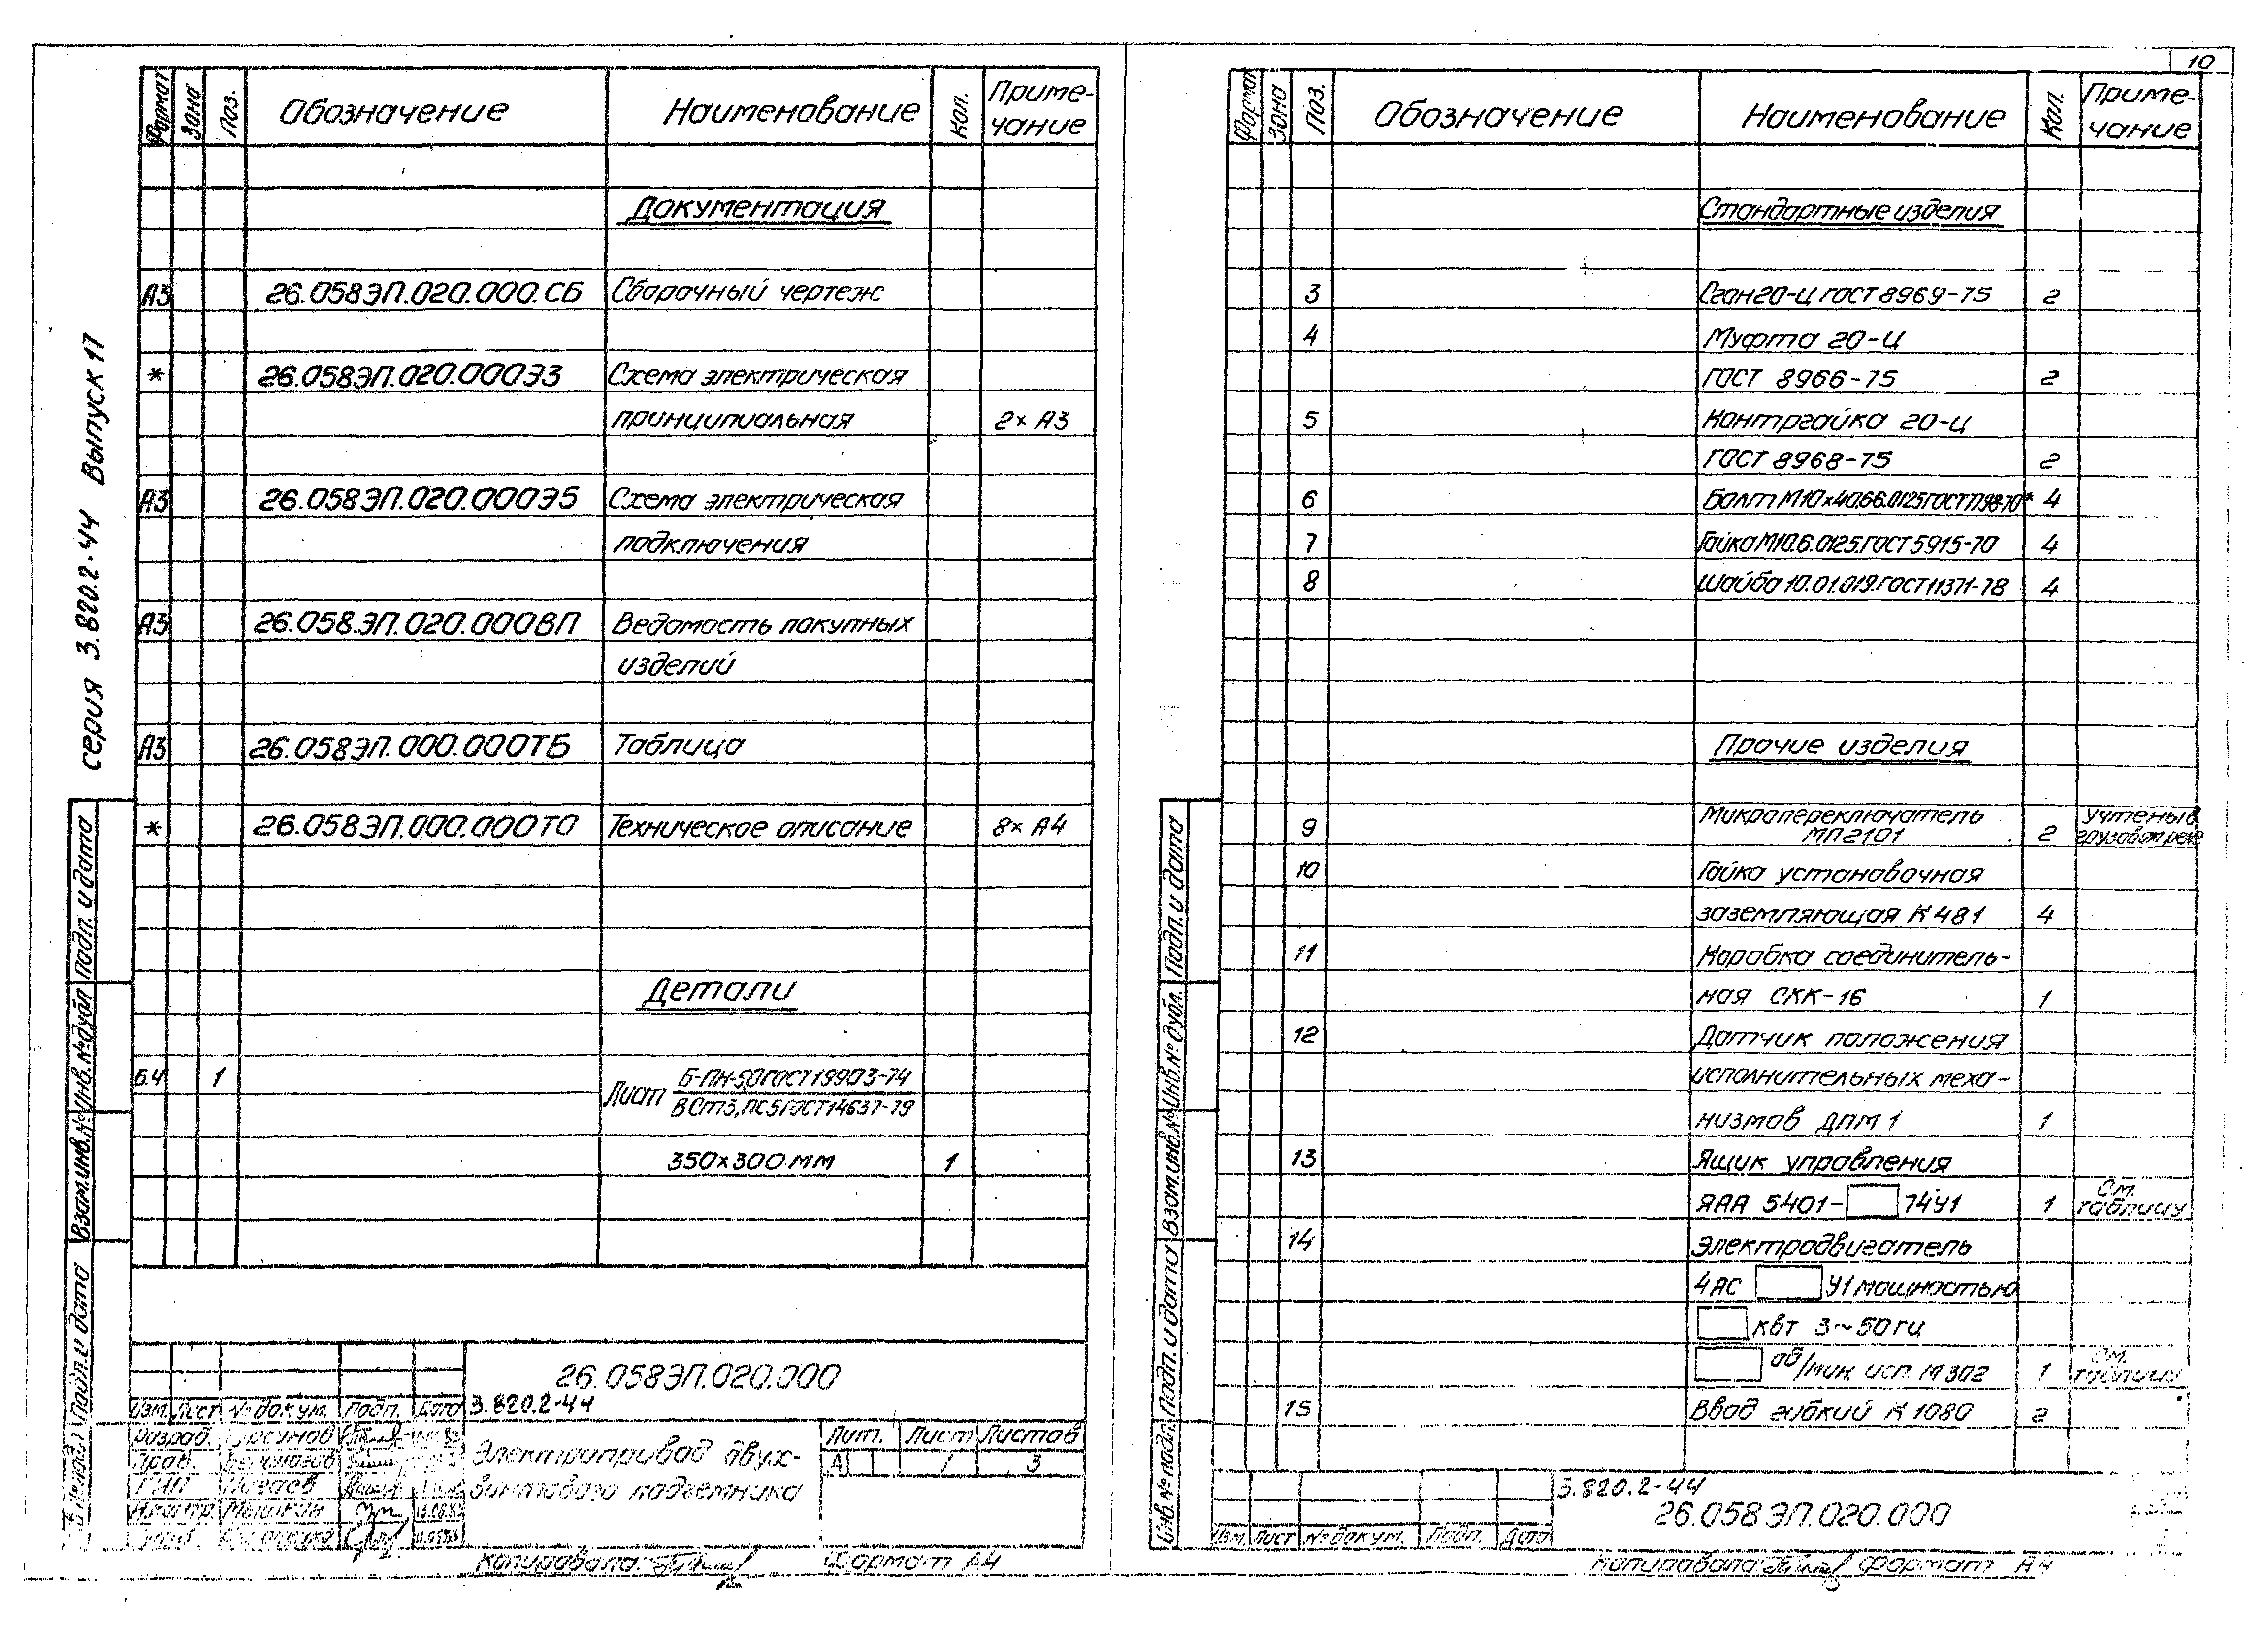 10
серия 3.820.2-44 Выпуск 17
Формат Зона Поз. Обозначение Наименование Кол. Приме-
чание
Документация
А3 26.058ЭП.020.000.СБ Сборочный чертеж
* 26.058ЭП.020.000Э3 Схема электрическая
принципиальная 2×А3
А3 26.058ЭП.020.000Э5 Схема электрическая
подключения
А3 26.058.ЭП.020.000ВП Ведомость покупных
изделий
А3 26.058ЭП.000.000ТБ Таблица
* 26.058ЭП.000.000ТО Техническое описание 8×А4
Детали
Б.Ч 1 Лист Б-ПН-5,0 ГОСТ 19903-74
ВСт3,пс5 ГОСТ 14637-79
350×300 мм 1
Подп. и дата
Инв.№ дубл
Взам.инв.№
Подп. и дата
26.058ЭП.020.000
3.820.2-44
Изм. Лист № докум. Подп. Дата
Разраб.
Пров.
ГИП
Н.контр.
Электропривод двух-
винтового подъемника
Лит. Лист Листов
А 1 3
Копировала: Формат А4
Формат Зона Поз. Обозначение Наименование Кол. Приме-
чание
Стандартные изделия
3 Сгон 20-Ц ГОСТ 8969-75 2
4 Муфта 20-Ц
ГОСТ 8966-75 2
5 Контргайка 20-Ц
ГОСТ 8968-75 2
6 Болт М10×40.66.0125 ГОСТ 7798-70* 4
7 Гайка М10.6.0125.ГОСТ 5915-70 4
8 Шайба 10.01.019.ГОСТ 11371-78 4
Прочие изделия
9 Микропереключатель
МП2101 2 Учтены в
грузовом реле
10 Гайка установочная
заземляющая К481 4
11 Коробка соединитель-
ная СКК-16 1
12 Датчик положения
исполнительных меха-
низмов ДПМ1 1
13 Ящик управления
ЯАА 5401- 74У1 1 См.
таблицу
14 Электродвигатель
4АС У1 мощностью
квт 3~50гц
об/мин. исп. М302 1 См.
таблицу
15 Ввод гибкий К1080 2
Подп. и дата
Инв.№ дубл.
Взам.инв.№
Подп. и дата
Инв.№ подл.
3.820.2-44
26.058ЭП.020.000
Изм. Лист № докум. Подп. Дата
Копировала: Формат А4